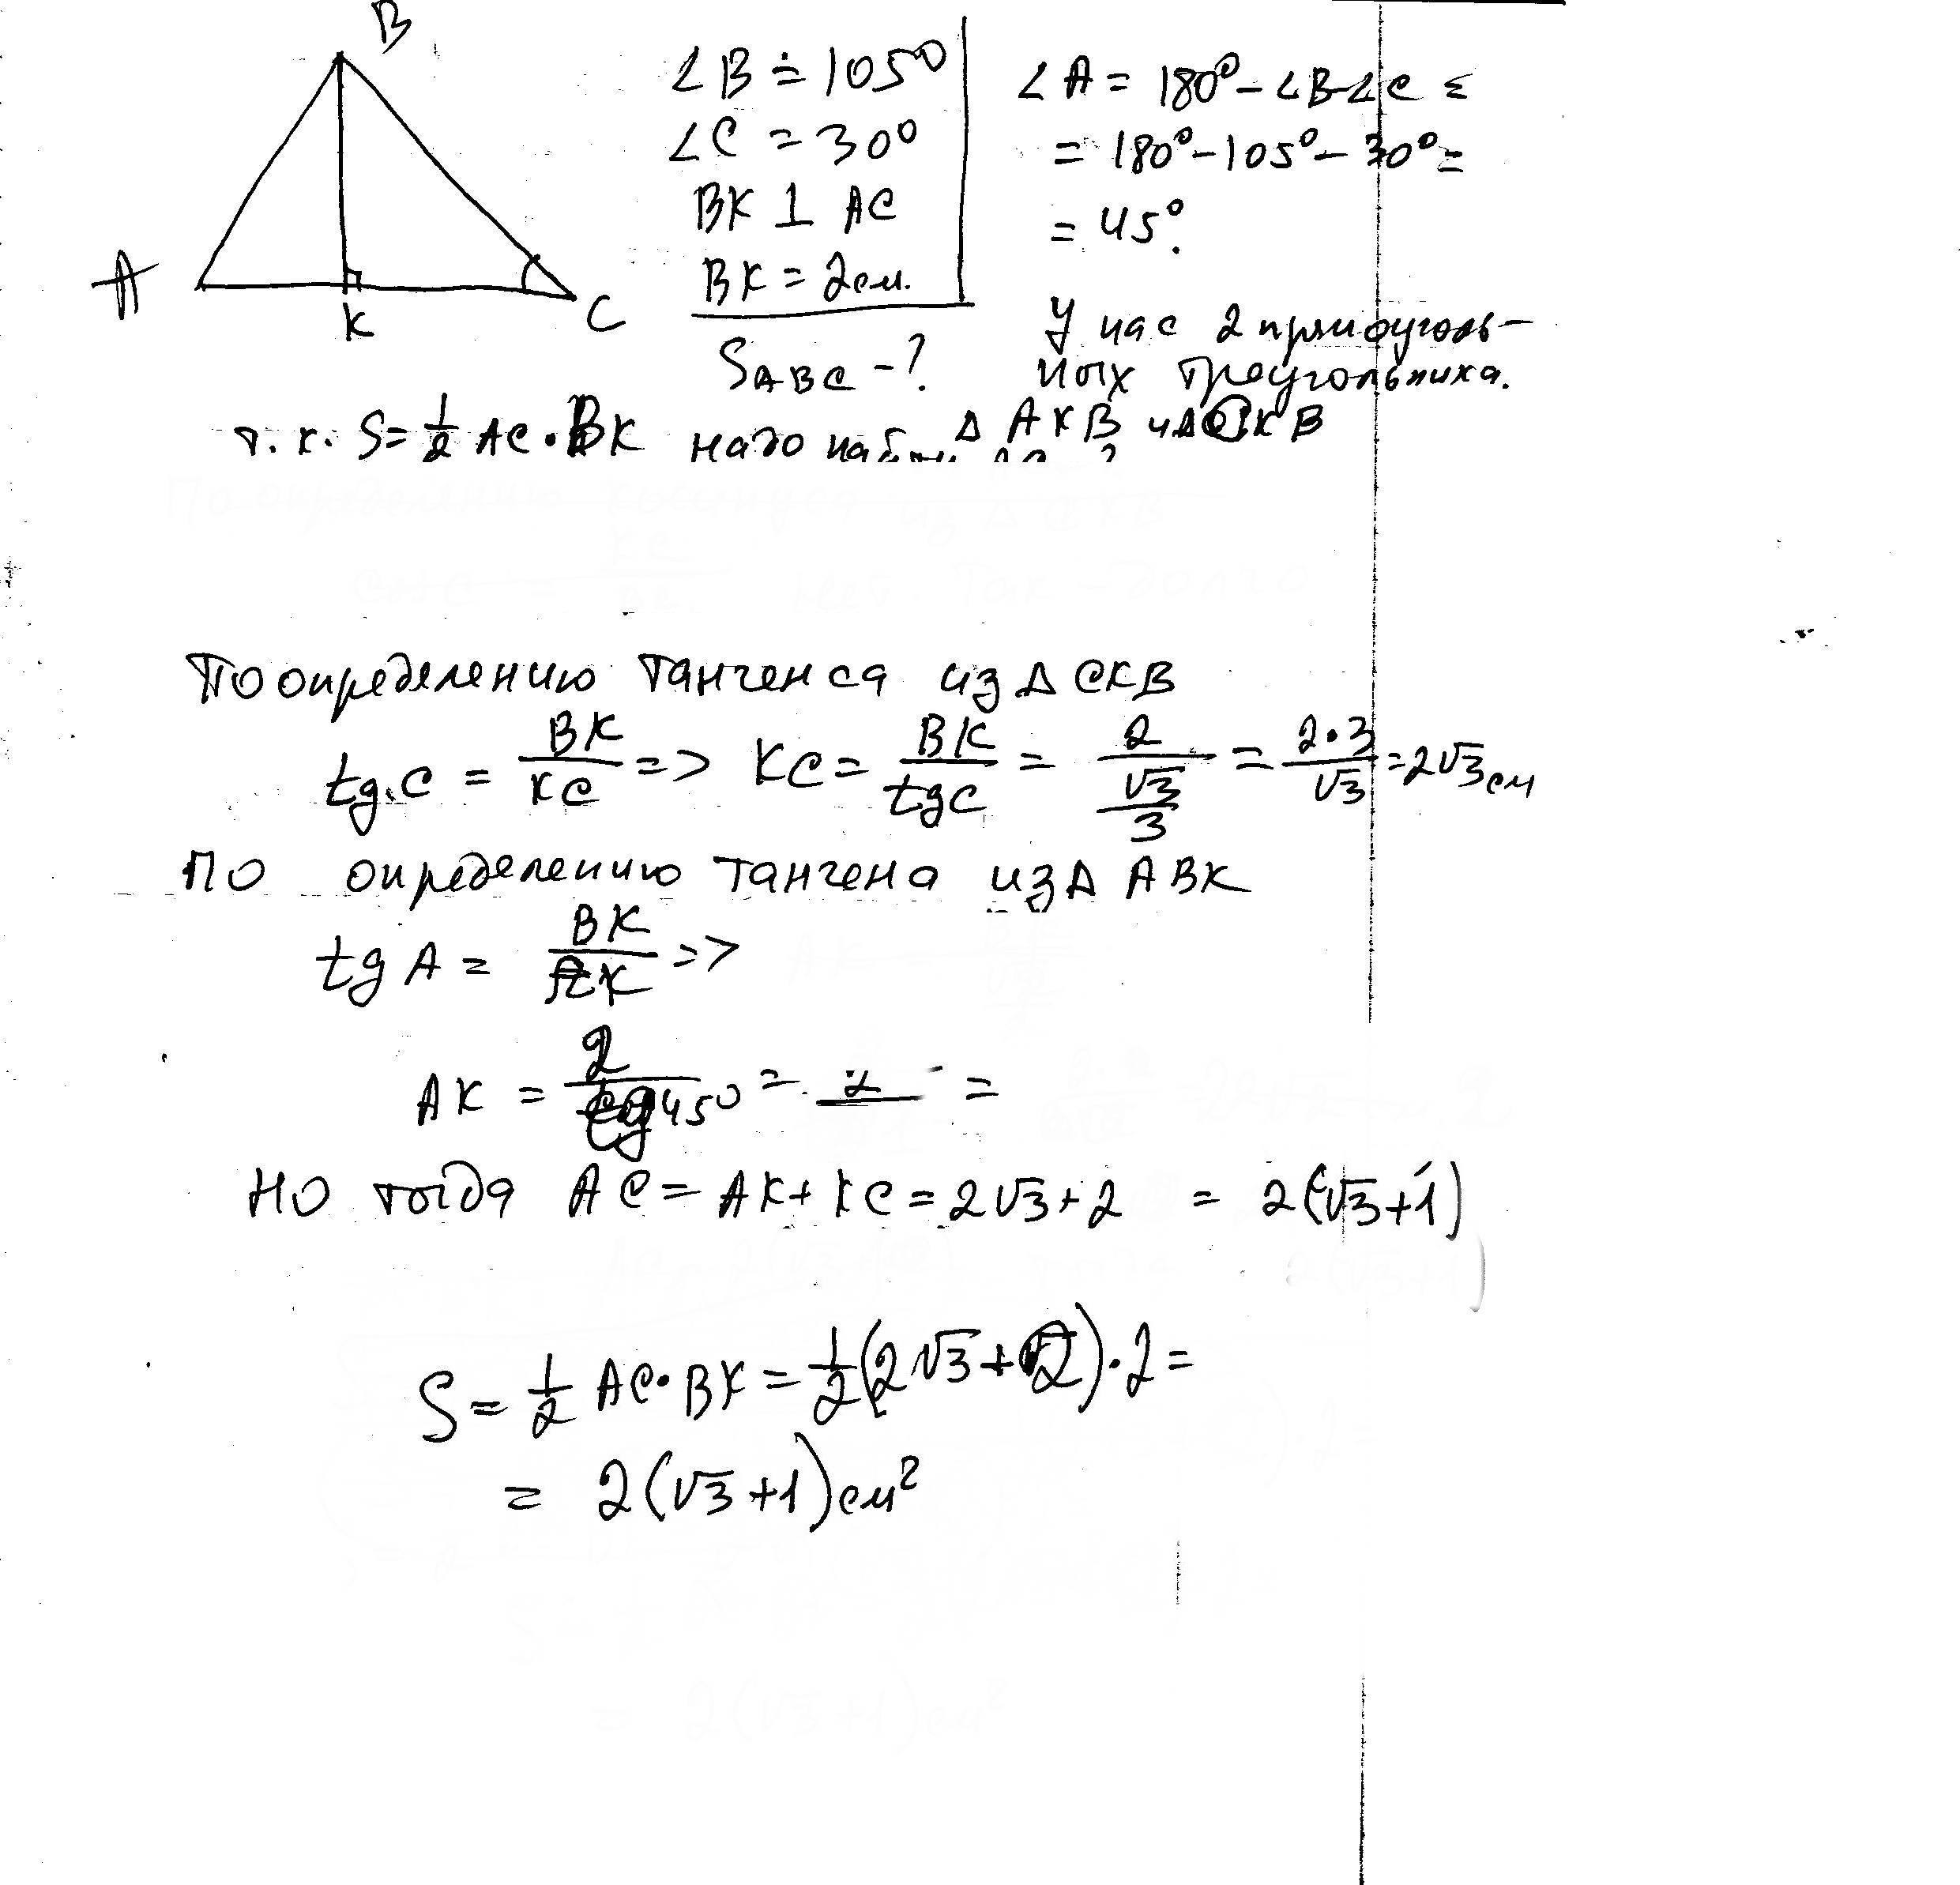 B
A
K
C
∠B = 105°
∠C = 30°
BK ⊥ AC
BK = 2см.
S ABC - ?
∠A = 180° - ∠B - ∠C =
= 180° - 105° - 30° =
= 45°.
У нас 2 прямоуголь-
ных треугольника.
Δ AKB и Δ CKB
т.к. S = 1/2 AC · BK надо найти
По определению тангенса из Δ CKB
tg C = BK/KC => KC = BK/tg C = 2/(√3/3) = 2·3/√3 = 2√3 см
По определению тангена из Δ ABK
tg A = BK/AK =>
AK = 2/tg 45° = 2/ =
Но тогда AC = AK + KC = 2√3 + 2 = 2(√3+1)
S = 1/2 AC · BK = 1/2 (2√3 + 2) · 2 =
= 2(√3+1) см²